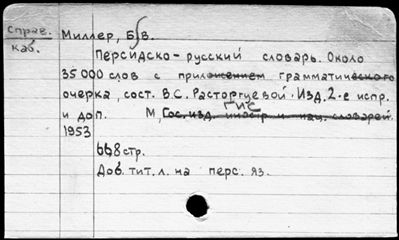 справ. Миллер, Б.В.
каб. Персидско-русский словарь. Около
35 000 слов с приложением грамматического
очерка, сост. В.С. Расторгуевой. Изд. 2-е испр.
ГИС
и доп. М, Гос. изд. иностр. и нац. словарей
1953
668 стр.
Доб. тит. л. на перс. яз.